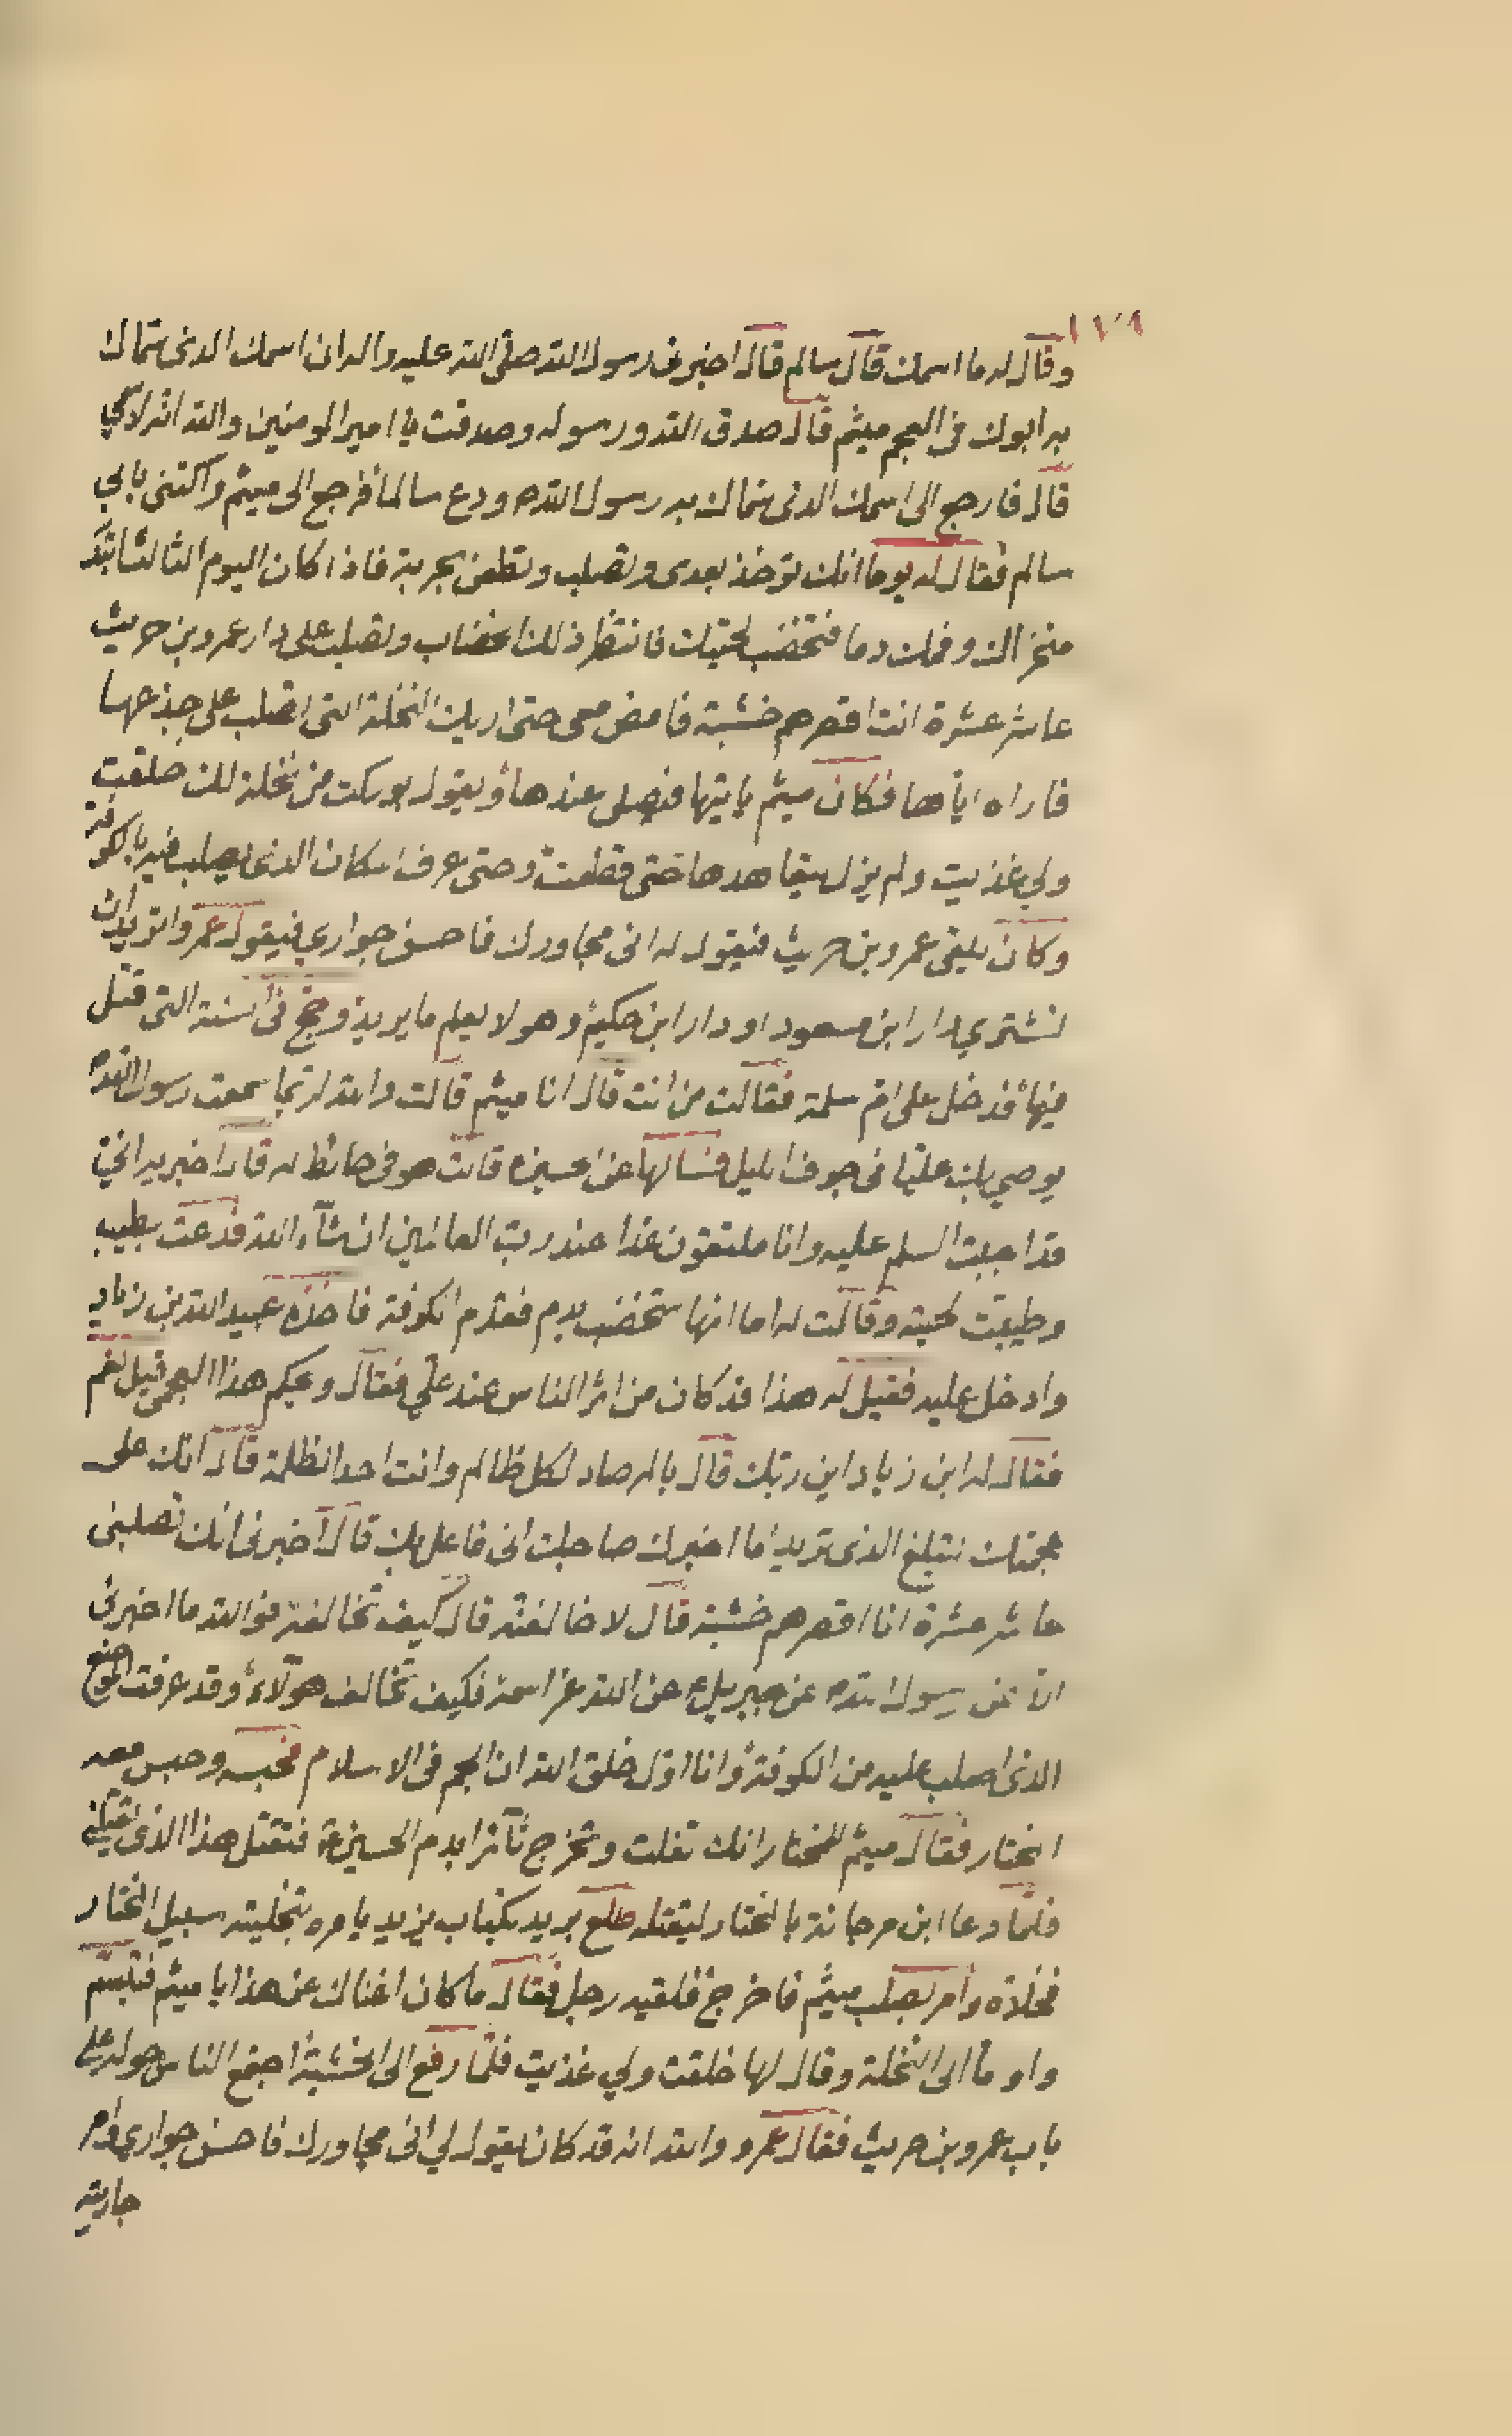 وقال له ما اسمك قال سالم قال اخبرني رسول الله صلى الله عليه واله ان اسمك الذى سماك
به ابوك فى العجم ميثم قال صدق الله ورسوله وصدقت يا امير المومنين والله انه لاسمي
قال فارجع الى اسمك الذى سماك به رسول الله ص ودع سالما فرجع الى ميثم واكتنى بابي
سالم فقال له يوما انك توخذ بعدى وتصلب وتطعن بحربة فاذا كان اليوم الثالث ابتدر
منخراك وفمك دما فتخضب لحيتك فانتظر ذلك الخضاب وتصلب على دار عمرو بن حريث
عاشر عشرة انت اقصرهم خشبة فامض معى حتى اريك النخلة التى تصلب على جذعها
فاراه اياها فكان ميثم ياتيها فيصلى عندها ويقول بوركت من نخلة لك خلقت
ولي غذيت ولم يزل يتعاهدها حتى قطعت وحتى عرف المكان الذى يصلب فيه بالكوفة
وكان يلقى عمرو بن حريث فيقول له انى مجاورك فاحسن جواري فيقول عمرو اتريد ان
تشتري دار ابن مسعود او دار ابن حكيم وهو لا يعلم ما يريد وحج فى السنة التى قتل
فيها فدخل على ام سلمة فقالت من انت قال انا ميثم قالت والله لربما سمعت رسول الله ص
يوصي بك عليا فى جوف الليل فسالها عن الحسين ع قالت هو فى حائط له قال اخبريه انى
قد احببت السلم عليه وانا ملتقون غدا عند رب العالمين ان شاء الله فدعت بطيب
وطيبت لحيته وقالت له اما انها ستخضب بدم فقدم الكوفة فاخذه عبيد الله بن زياد
وادخل عليه فقيل له هذا قد كان من اثر الناس عند علي فقال ويحكم هذا العجمى قيل نعم
فقال له ابن زياد اين ربك قال بالمرصاد لكل ظالم وانت احد الظلمة قال انك على
عجمتك لتبلغ الذى تريد اما اخبرك صاحبك انى فاعل بك قال اخبرنى انك تصلبنى
عاشر عشرة انا اقصرهم خشبة قال لاخالفنه قال كيف تخالفه فوالله ما اخبرنى
الا عن رسول الله ص عن جبريل ع عن الله عز اسمه فكيف تخالف هولاء وقد عرفت الموضع
الذى اصلب عليه من الكوفة وانا اول خلق الله ان الجم فى الاسلام فحبسه وحبس معه
المختار فقال ميثم للمختار انك تفلت وتخرج ثائرا بدم الحسين ع فتقتل هذا الذى يقتلنى
فلما دعا ابن مرجانة بالمختار ليقتله طلع بريد بكتاب يزيد يامره بتخلية سبيل المختار
فخلاه وامر بصلب ميثم فاخرج فلقيه رجل فقال ما كان اغناك عن هذا يا ميثم فتبسم
واوما الى النخلة وقال لها خلقت ولي غذيت فلما رفع الى الخشبة اجتمع الناس حوله على
باب عمرو بن حريث فقال عمرو والله انه قد كان يقول لي انى مجاورك فاحسن جوارى وامر
جاريته